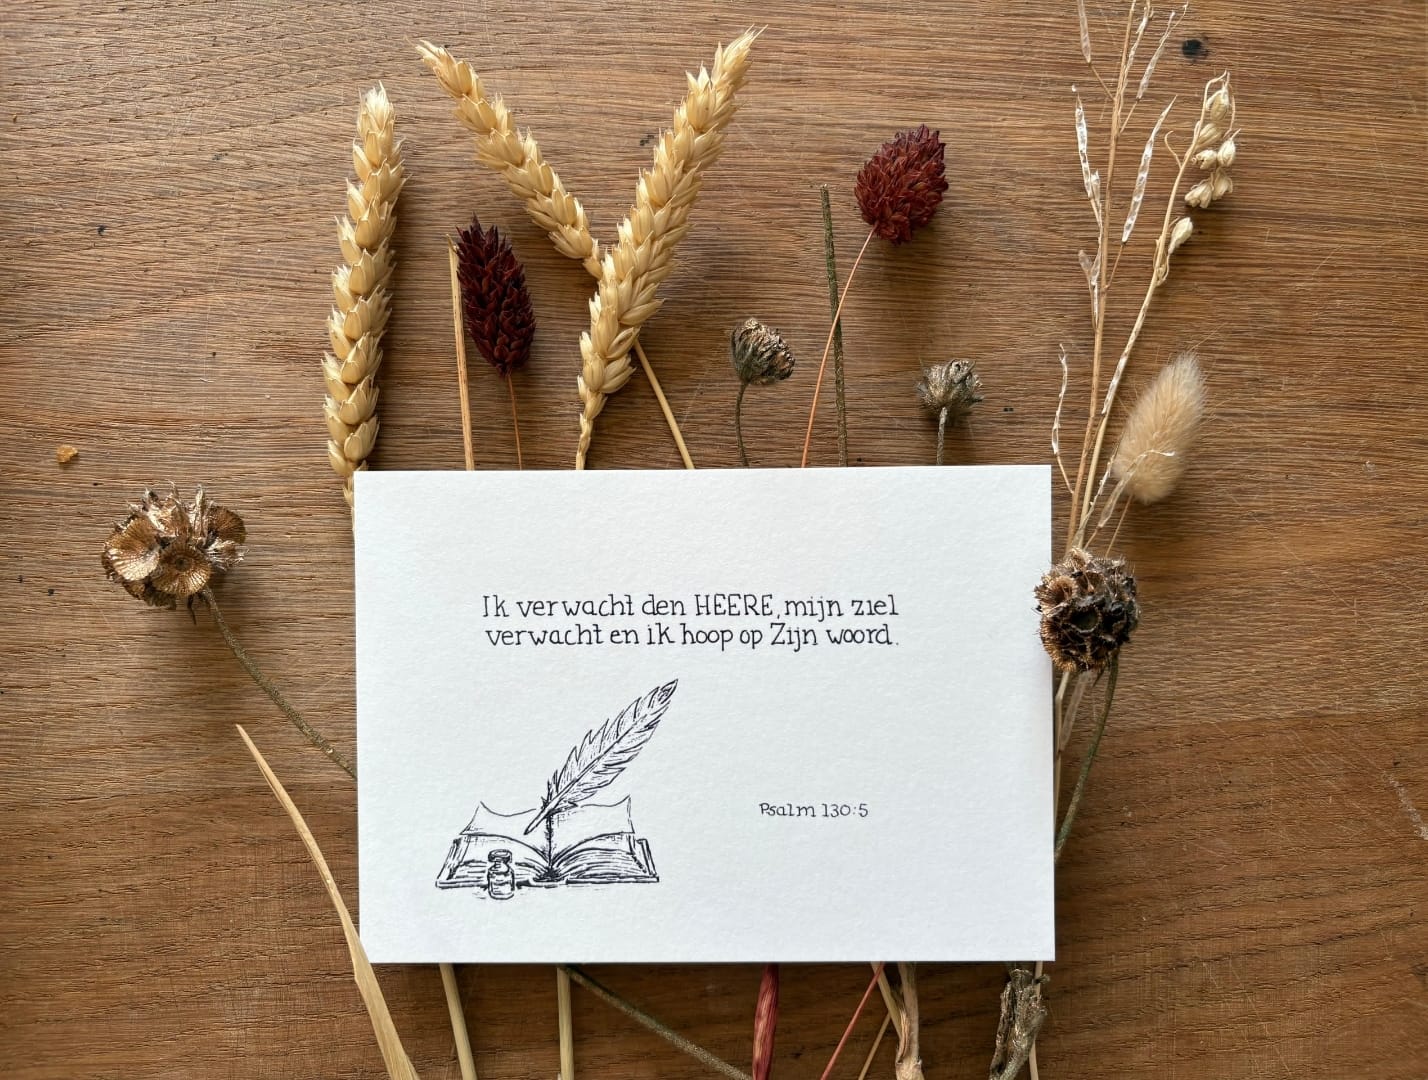 Ik verwacht den HEERE, mijn ziel
verwacht en ik hoop op Zijn woord.
Psalm 130:5